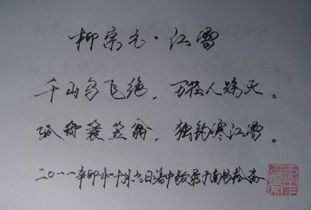 柳宗元·江雪
千山鸟飞绝，万径人踪灭。
孤舟蓑笠翁，独钓寒江雪。
二〇一一辛卯年十月六日